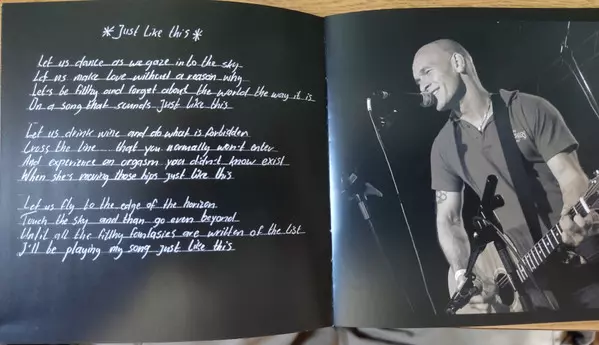 * Just Like this *
Let us dance as we gaze into the sky
Let us make love without a reason why
Let's be filthy and forget about the world the way it is
On a song that sounds just like this
Let us drink wine and do what is forbidden
Cross the line ... that you normally won't enter
And experience an orgasm you didn't know exist
When she's moving those hips just like this
Let us fly to the edge of the horizon
Touch the sky and than go even beyond
Until all the filthy fantasies are written of the list
I'll be playing my song just like this